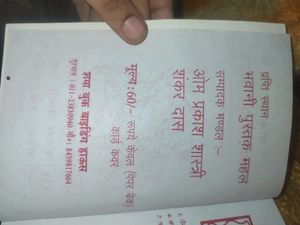 प्राप्ति स्थान :
भवानी पुस्तक महल
सम्पादक मण्डल :-
ओम प्रकाश शास्त्री
शंकर दास
मूल्य : 60/- रुपये केवल (पेपर बैक)
कार्ड कवर
शर्मा बुक बाइंडिंग हाऊस
दूरभाष : 011-23830940 मो०: 8459817664